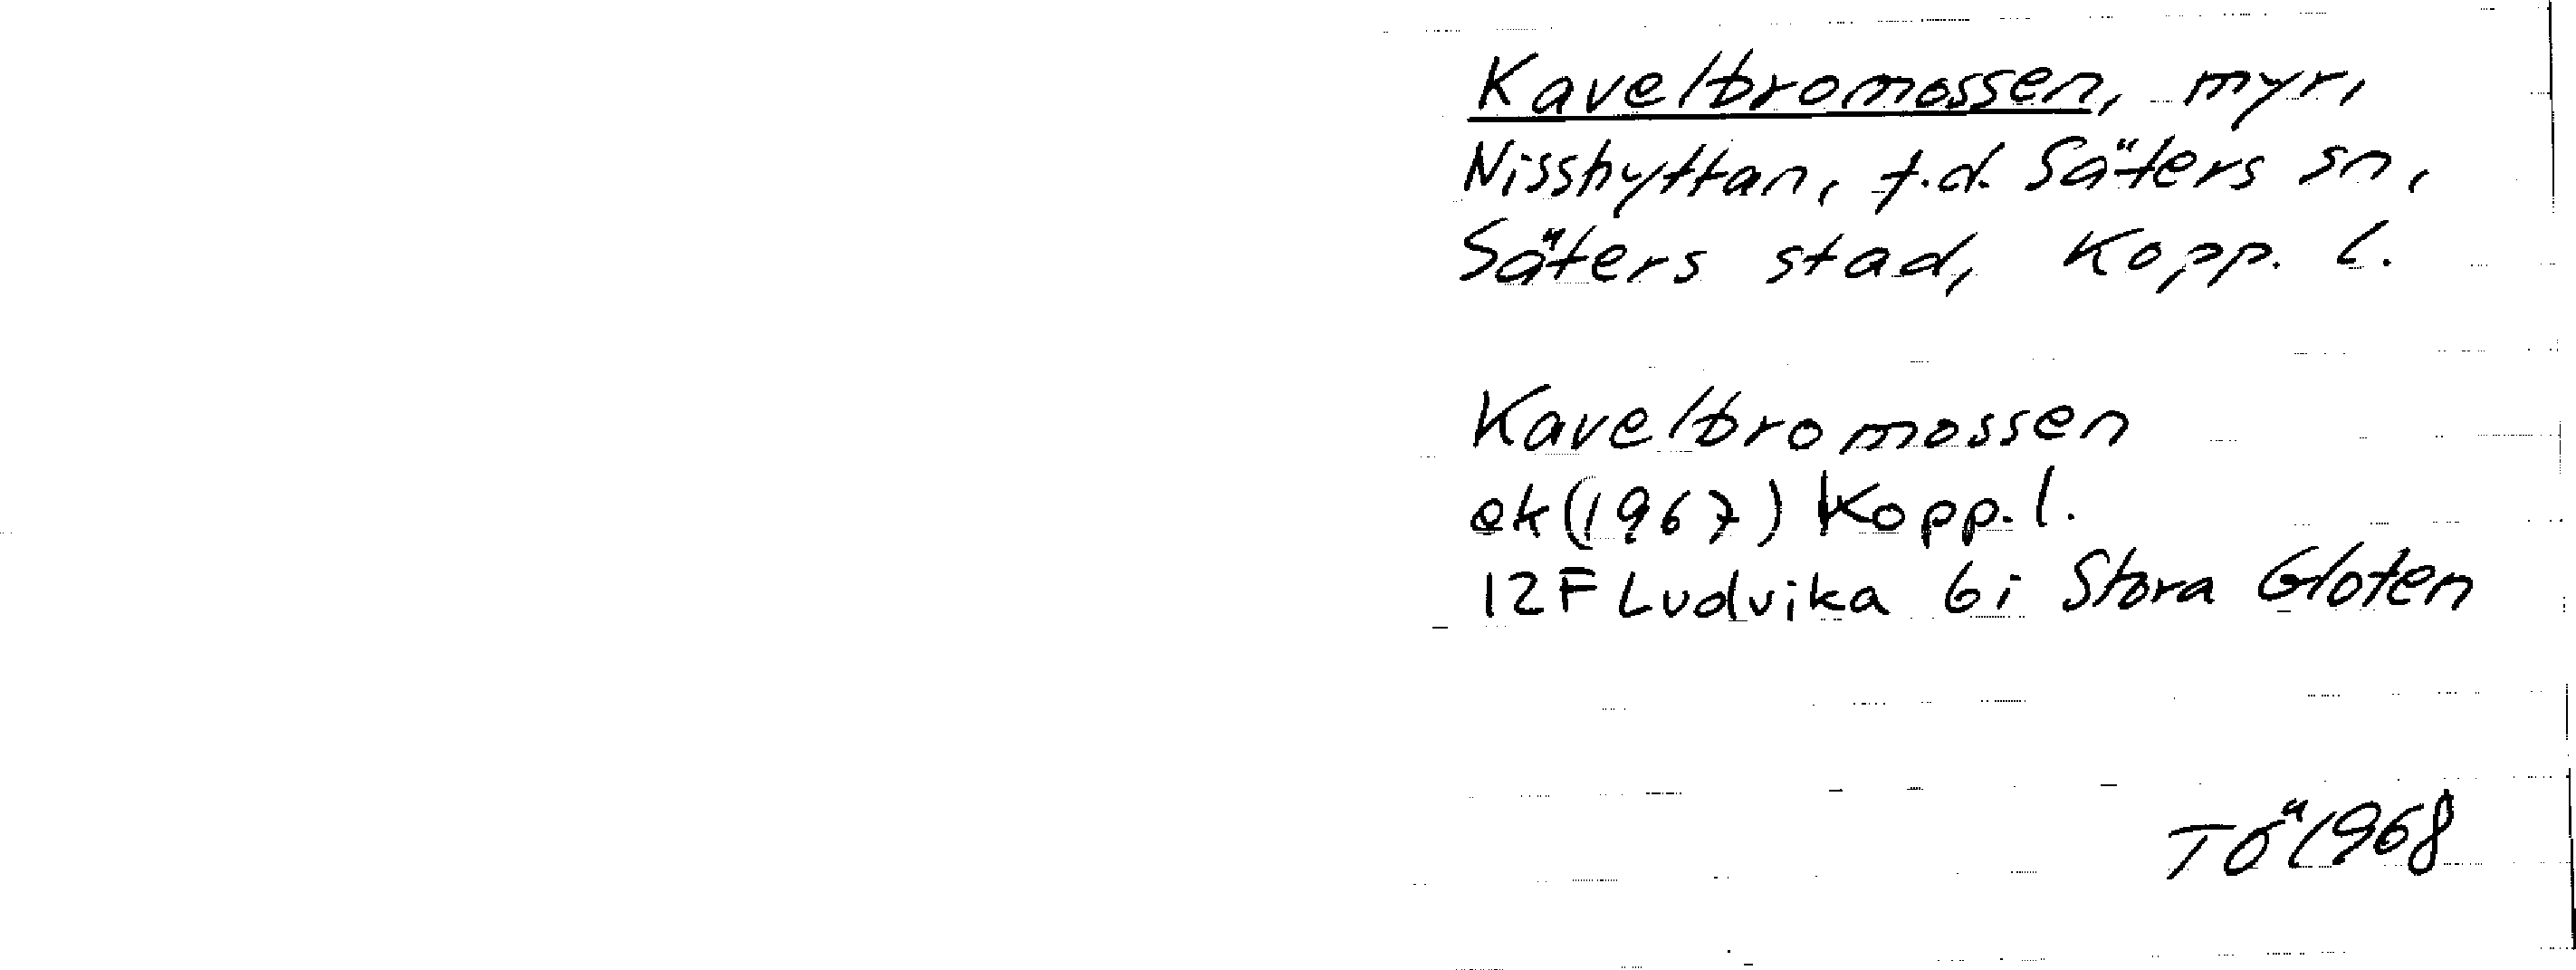 Kavelbromossen, myr,
Nisshyttan, f.d. Säters sn,
Säters stad, Kopp. l.
Kavelbromossen
ek (1967) Kopp. l.
12F Ludvika 6i Stora Gloten
TÖ 1968